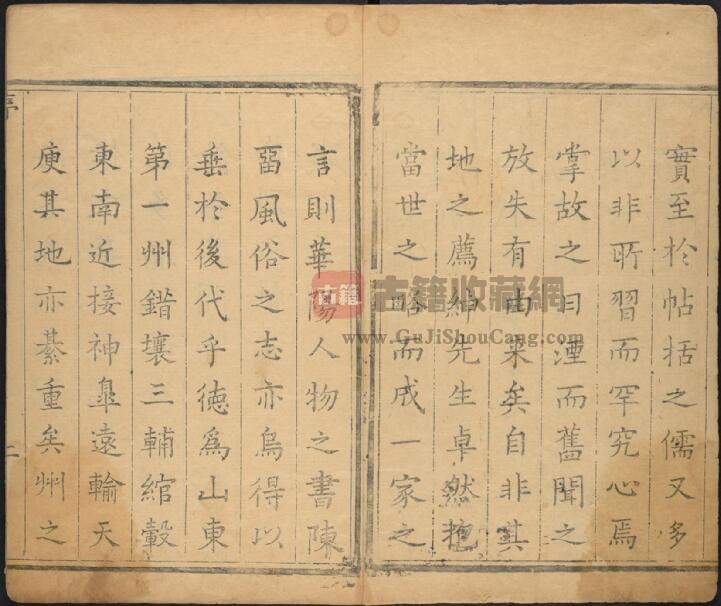 實至於帖括之儒又多
以非所習而罕究心焉
掌故之目湮而舊聞之
放失有由来矣自非其
地之薦紳先生卓然抱
當世之略而成一家之
言則華陽人物之書陳
畱風俗之志亦烏得以
垂於後代乎徳爲山東
第一州錯壤三輔綰轂
東南近接神臯遠輸天
庾其地亦綦重矣州之
序
古籍
古籍收藏網
www.GuJiShouCang.com